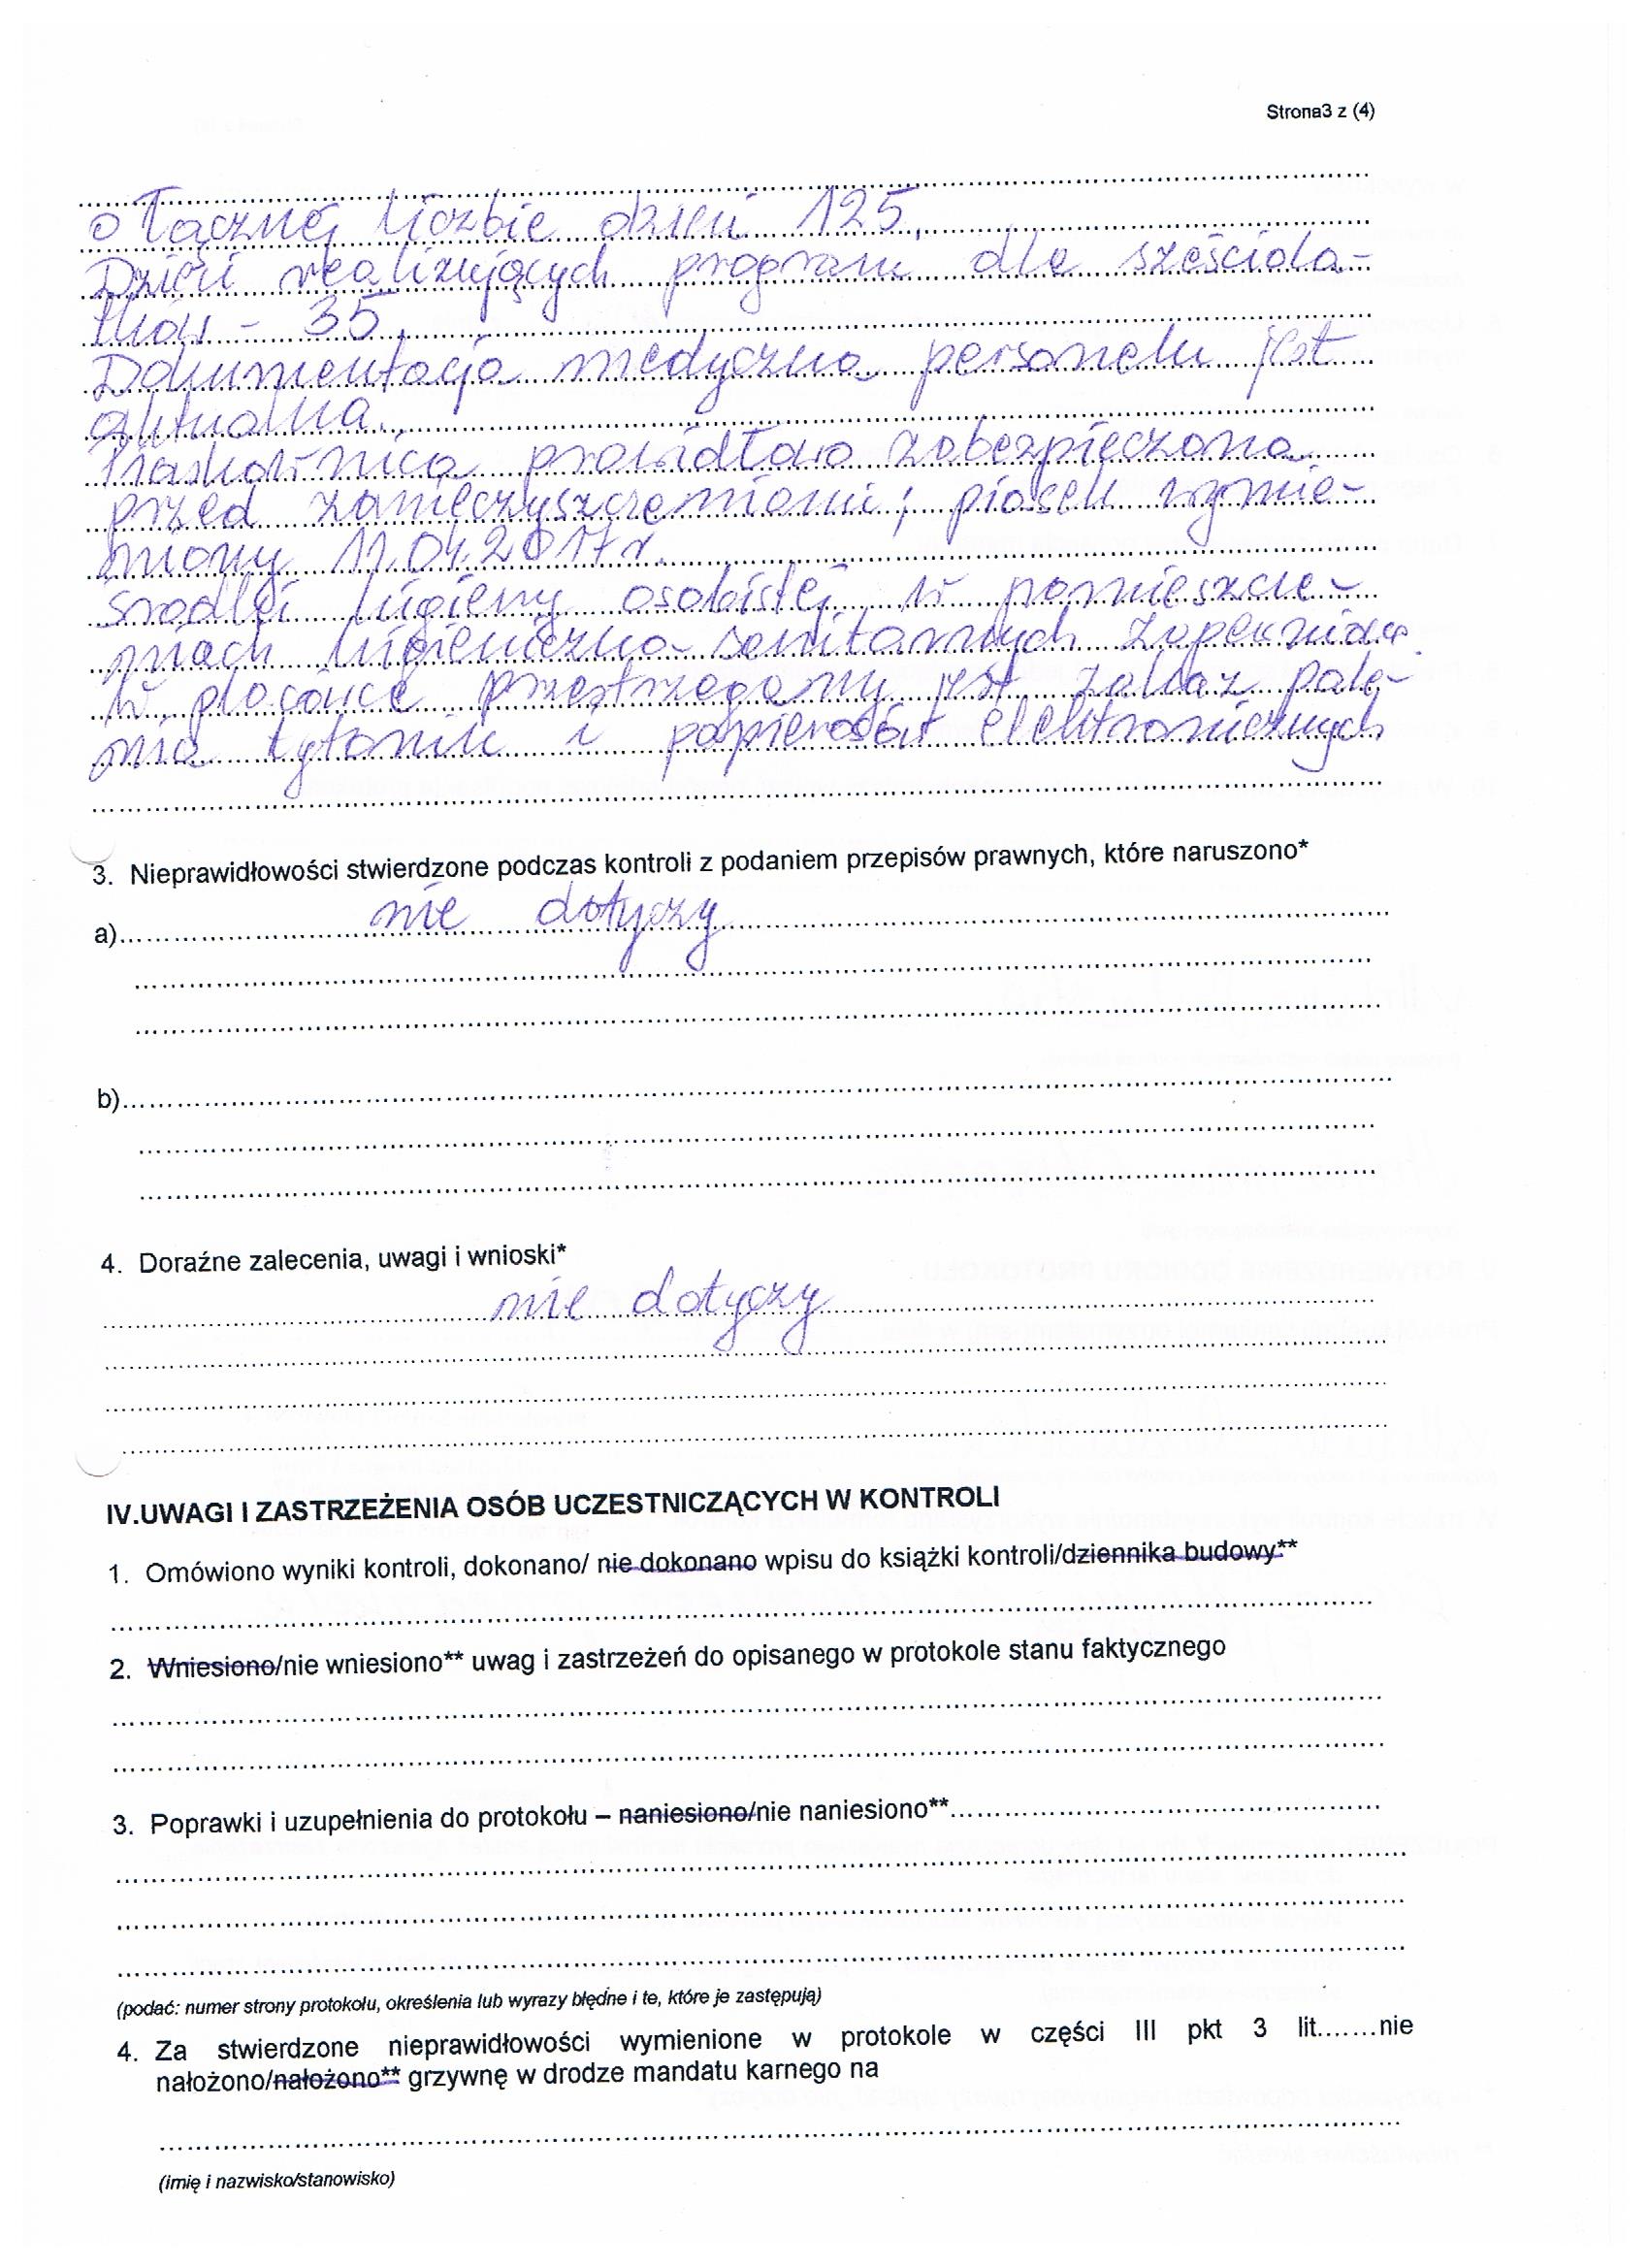 Strona3 z (4)
o łącznej liczbie dzieci 125.
Dzieci realizujących program dla sześciola-
tków - 35.
Dokumentacja medyczna personelu jest
aktualna.
Piaskownica prawidłowo zabezpieczona
przed zanieczyszczeniami, piasek wymie-
niony 11.04.2017r.
Środki higieny osobistej w pomieszcze-
niach higieniczno-sanitarnych zapewnione
W placówce przestrzegany jest zakaz pale-
nia tytoniu i papierosów elektronicznych
3. Nieprawidłowości stwierdzone podczas kontroli z podaniem przepisów prawnych, które naruszono*
a) nie dotyczy
b)
4. Doraźne zalecenia, uwagi i wnioski*
nie dotyczy
IV.UWAGI I ZASTRZEŻENIA OSÓB UCZESTNICZĄCYCH W KONTROLI
1. Omówiono wyniki kontroli, dokonano/ nie dokonano wpisu do książki kontroli/dziennika budowy**
2. Wniesiono/nie wniesiono** uwag i zastrzeżeń do opisanego w protokole stanu faktycznego
3. Poprawki i uzupełnienia do protokołu – naniesiono/nie naniesiono**
(podać: numer strony protokołu, określenia lub wyrazy błędne i te, które je zastępują)
4. Za stwierdzone nieprawidłowości wymienione w protokole w części III pkt 3 lit.......nie
nałożono/nałożono** grzywnę w drodze mandatu karnego na
(imię i nazwisko/stanowisko)